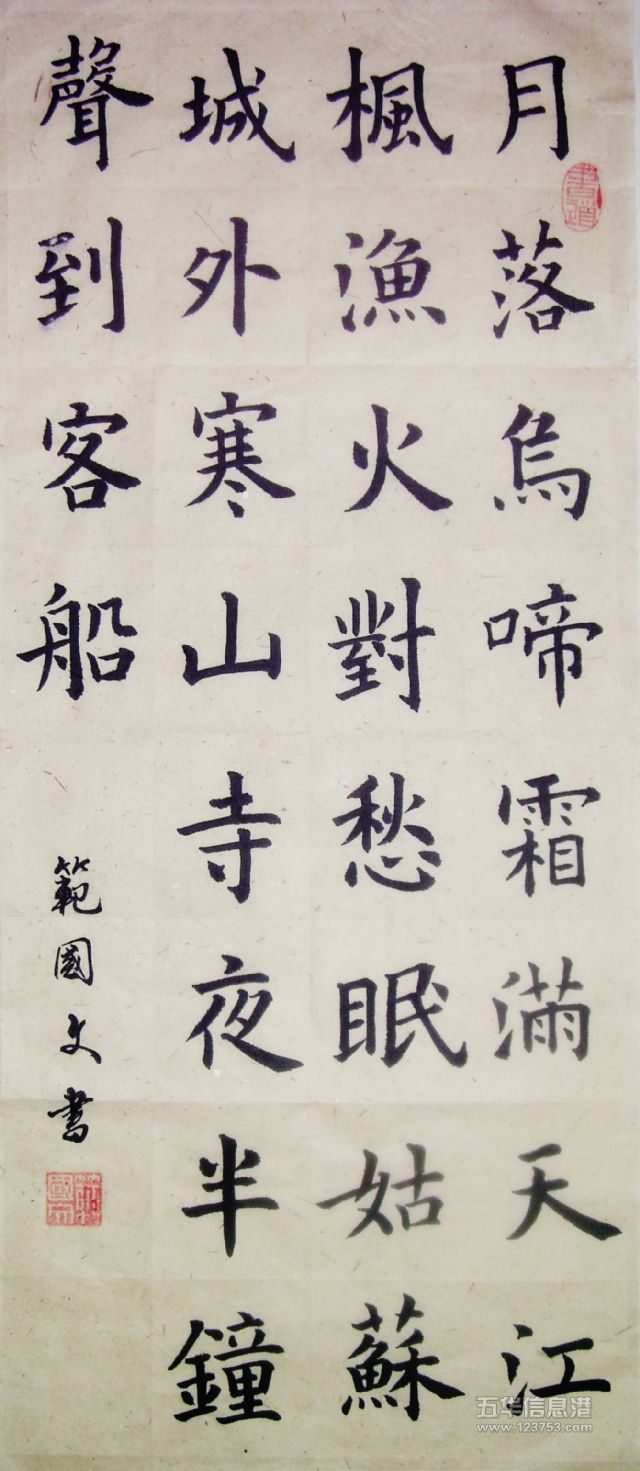 月落烏啼霜滿天江
楓漁火對愁眠姑蘇
城外寒山寺夜半鐘
聲到客船
範國文書
書道
五华信息港
www.123753.com